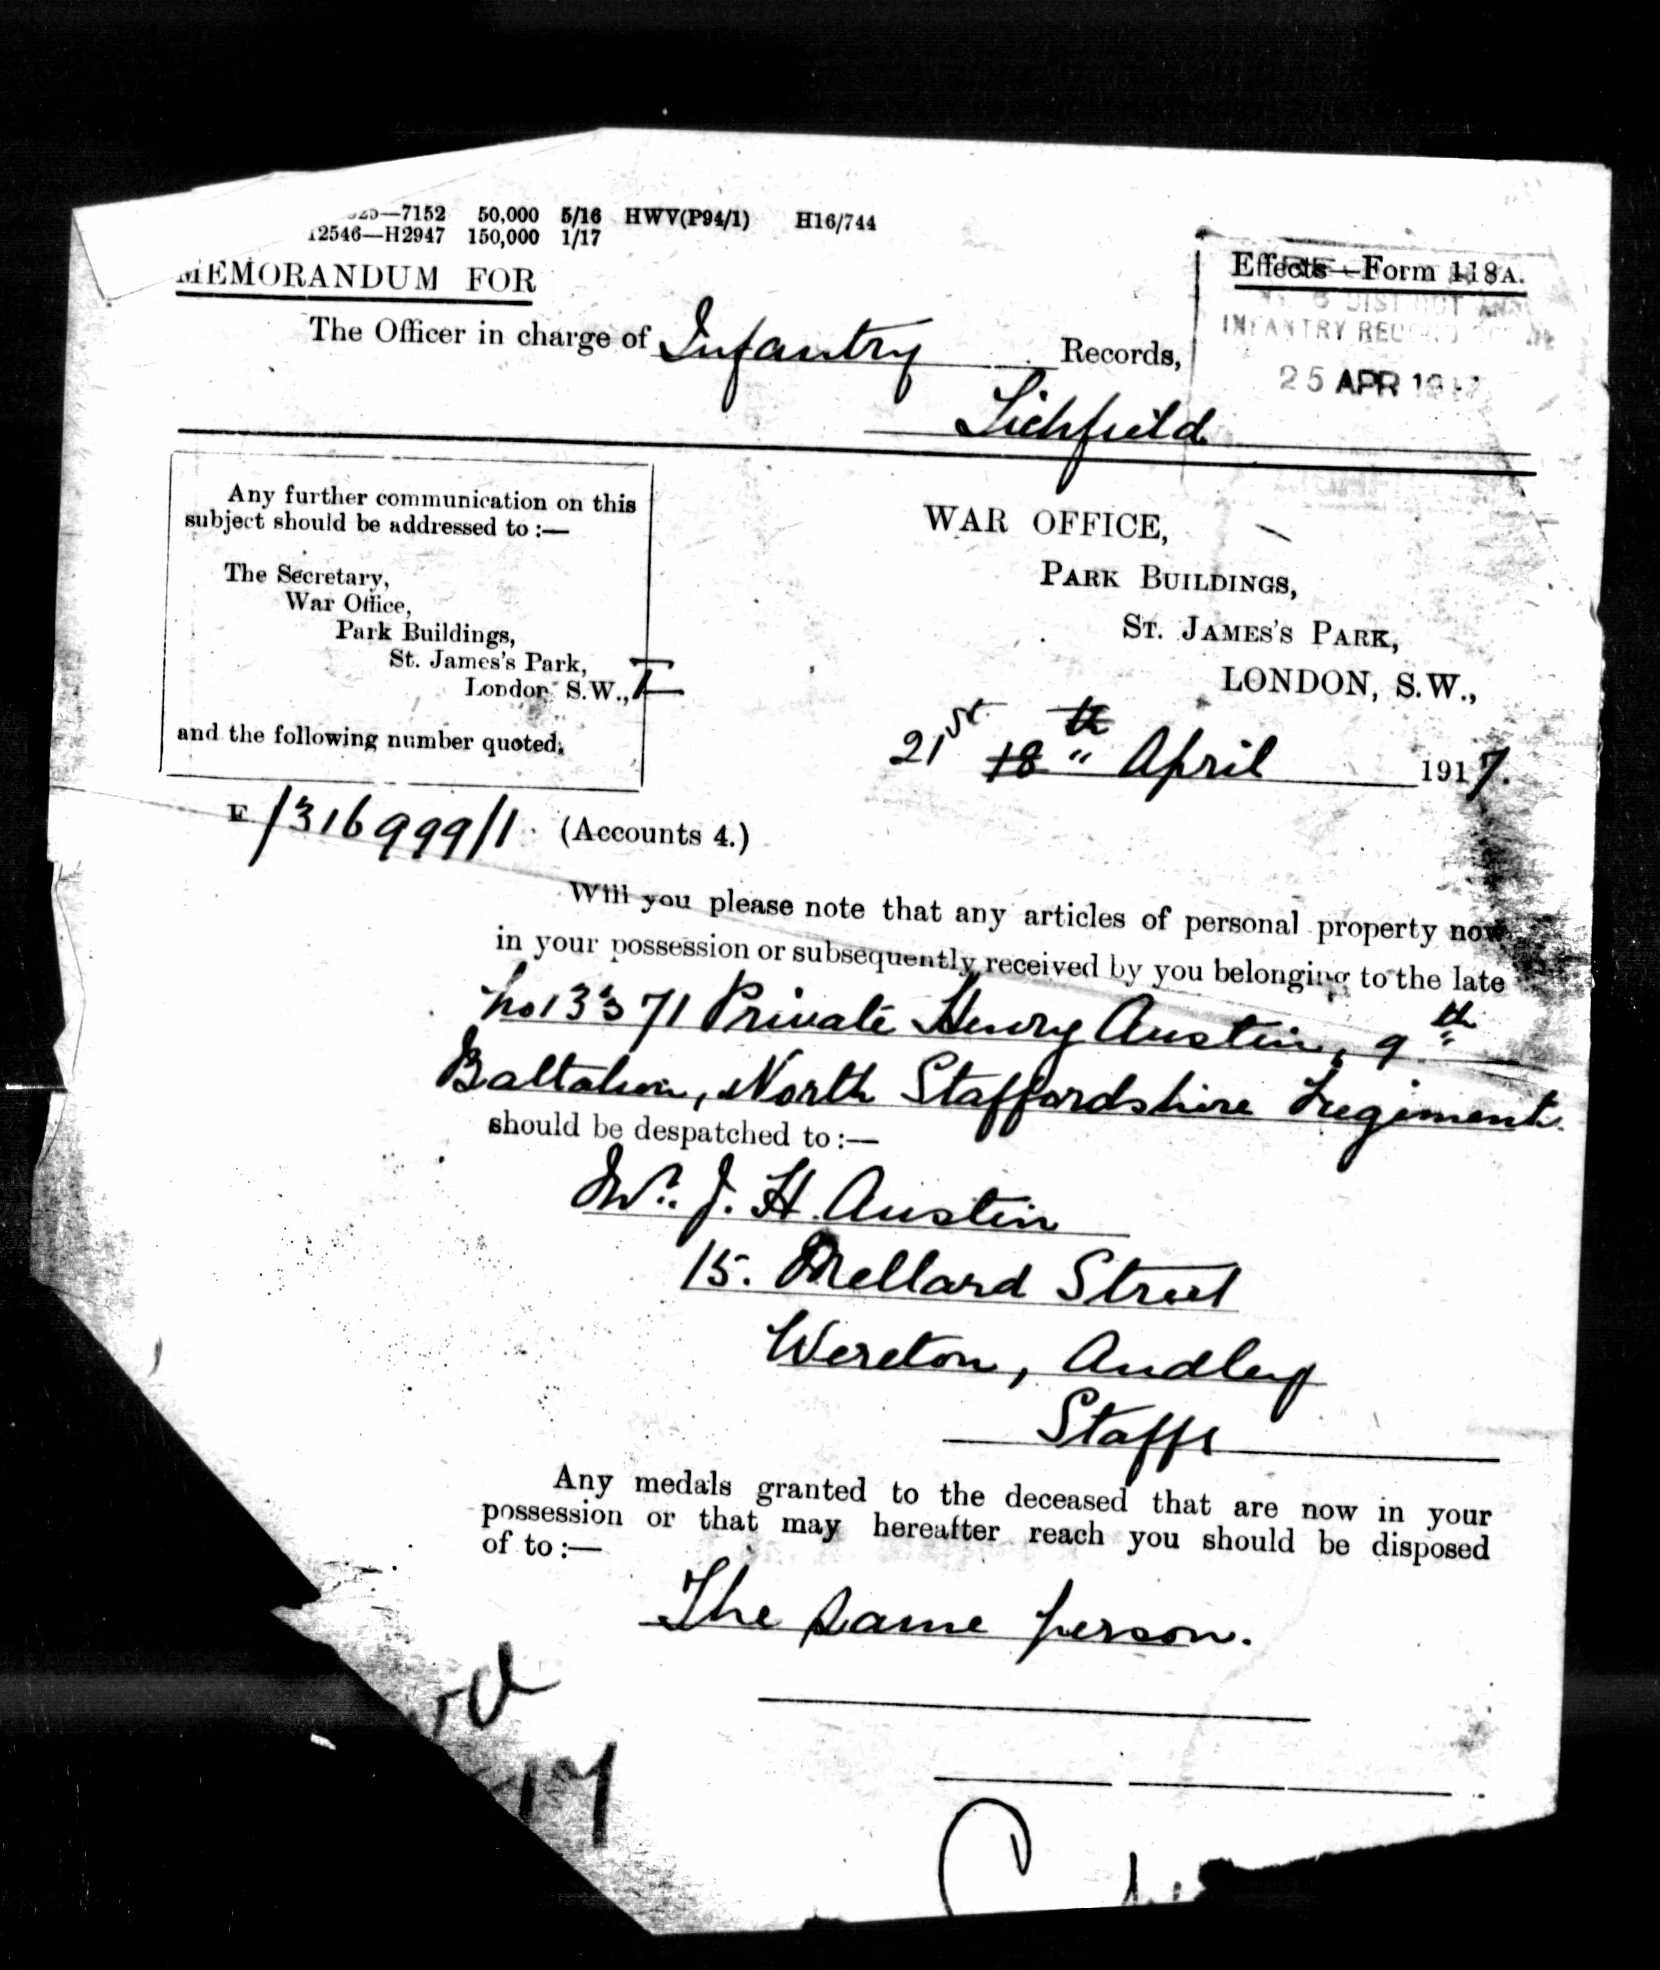 —7152 50,000 5/16 HWV(P94/1) H16/744
12546—H2947 150,000 1/17
MEMORANDUM FOR
Effects—Form 118A.
The Officer in charge of Infantry Records,
INFANTRY
25 APR 1917
Lichfield
Any further communication on this
subject should be addressed to :—
The Secretary,
War Office,
Park Buildings,
St. James's Park,
London S.W.,
and the following number quoted.
WAR OFFICE,
PARK BUILDINGS,
ST. JAMES'S PARK,
LONDON, S.W.,
21st 18th April 1917.
E/316999/1 (Accounts 4.)
Will you please note that any articles of personal property now
in your possession or subsequently received by you belonging to the late
No 13371 Private Henry Austin, 9th
Battalion, North Staffordshire Regiment
should be despatched to :—
Mr. J. H. Austin
15. Mellard Street
Wereton, Audley
Staffs
Any medals granted to the deceased that are now in your
possession or that may hereafter reach you should be disposed
of to :—
The same person.